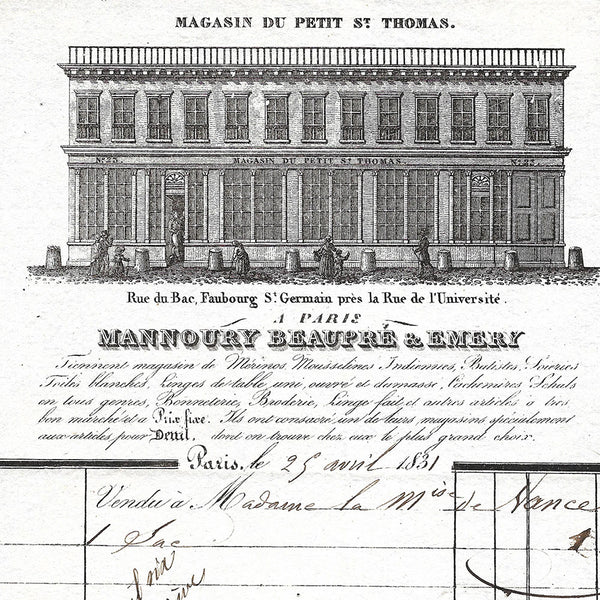 MAGASIN DU PETIT ST THOMAS.
No. 23. MAGASIN DU PETIT ST THOMAS. No. 23.
Rue du Bac, Faubourg St Germain près la Rue de l'Université.
A PARIS
MANNOURY BEAUPRÉ & EMERY
Tiennent magasin de Mérinos Mousselines Indiennes, Batistes, Soieries
Toiles blanches, Linges de table, uni, ouvré et damassé, Cachemires Schals
en tous genres, Bonneterie, Broderie, Linge fait et autres articles à très
bon marché et à Prix fixe. Ils ont consacré un de leurs magasins spécialement
aux articles pour Deuil, dont on trouve chez eux le plus grand choix.
Paris, le 25 avril 1831
Vendu à Madame la Mise de Nance
1 Sac 1